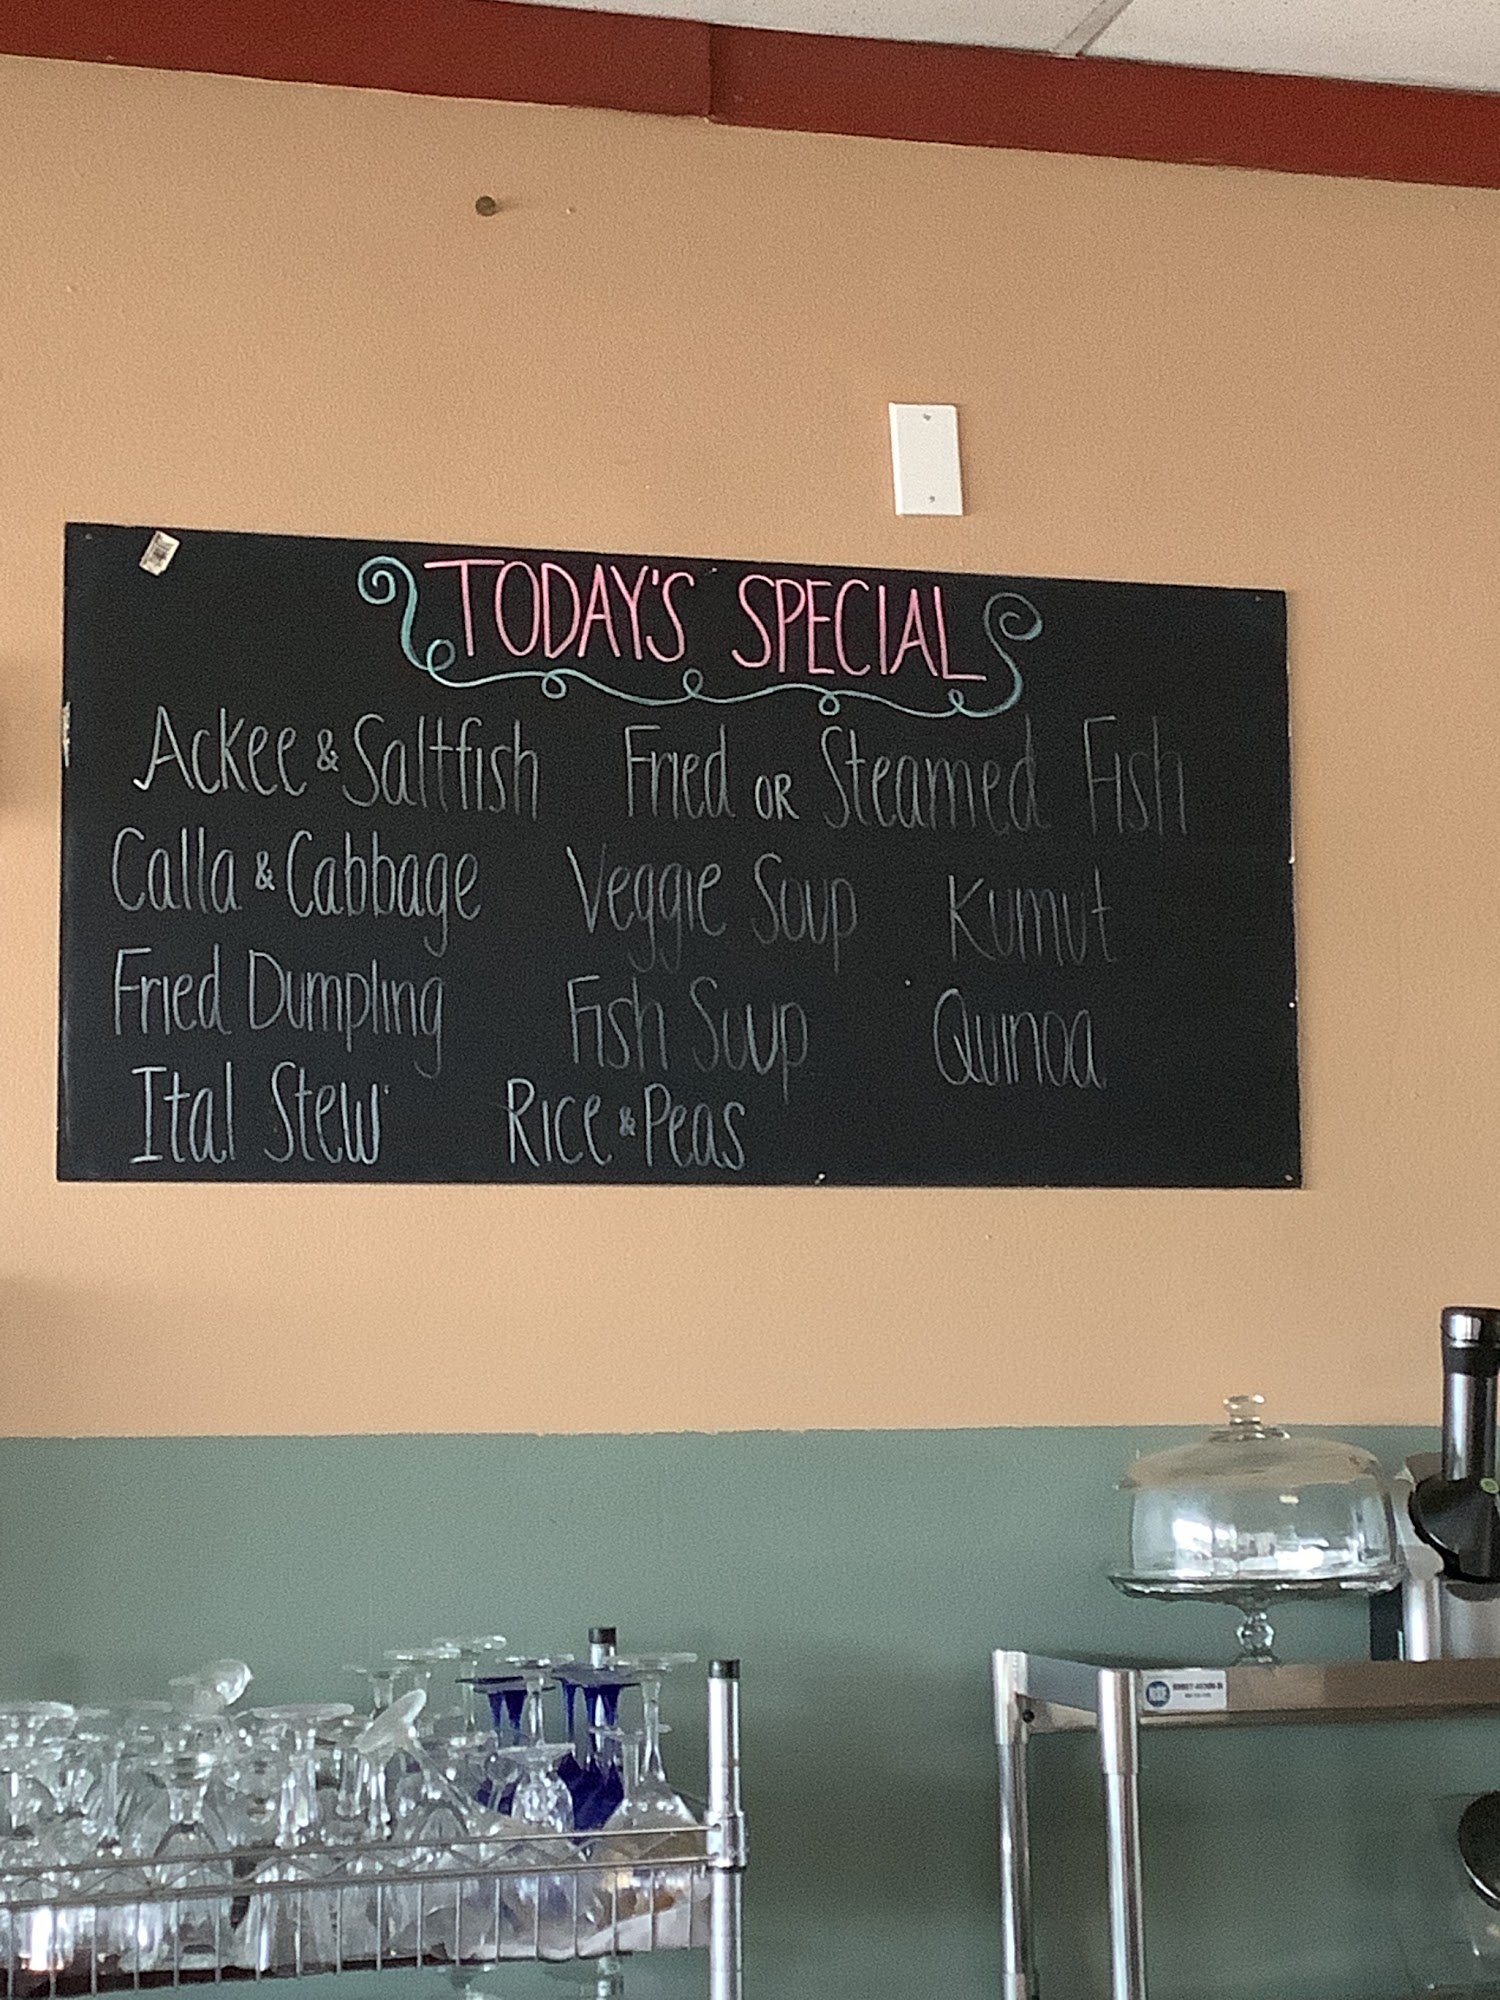 TODAY'S SPECIAL
Ackee & Saltfish Fried OR Steamed Fish
Calla & Cabbage Veggie Soup Kumut
Fried Dumpling Fish Soup Quinoa
Ital Stew Rice & Peas
NSF